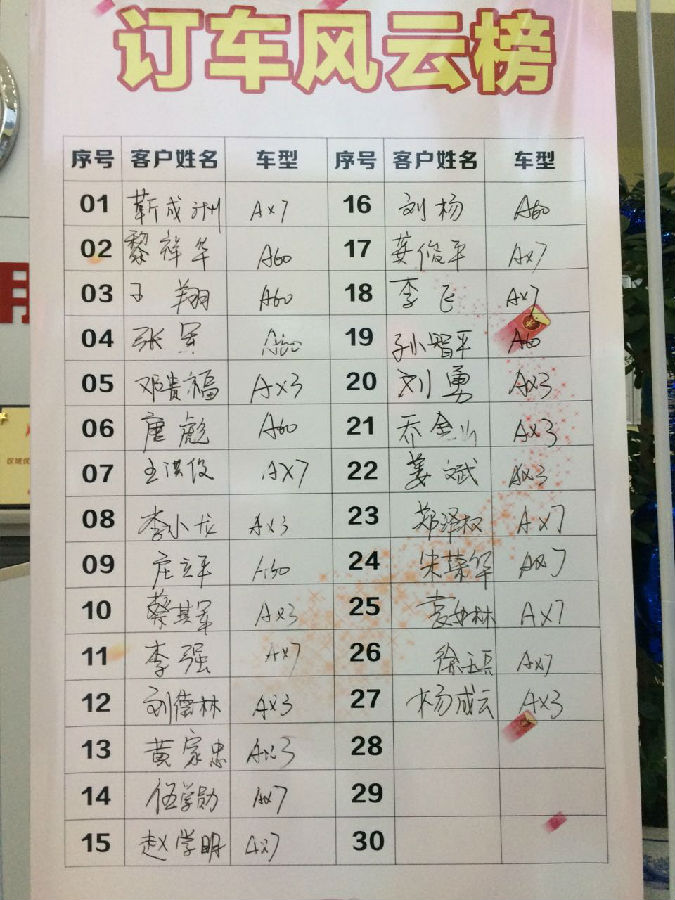 订车风云榜
序号 客户姓名 车型 序号 客户姓名 车型
01 靳成洲 AX7 16 刘杨 A60
02 黎祥华 A60 17 龚俊平 AX7
03 于翔 A60 18 李飞 AX7
04 张军 A60 19 孙智平 A60
05 邓贵福 AX3 20 刘勇 AX3
06 唐彪 A60 21 乔金山 AX3
07 王洪俊 AX7 22 姜斌 AX3
08 李小龙 AX3 23 郑泽权 AX7
09 庄立平 A30 24 朱荣华 AX7
10 蔡其军 AX3 25 袁如林 AX7
11 李强 AX7 26 徐 AX7
12 刘德林 AX3 27 杨成云 AX3
13 黄家忠 AX3 28
14 伍学勋 AX7 29
15 赵学明 AX7 30